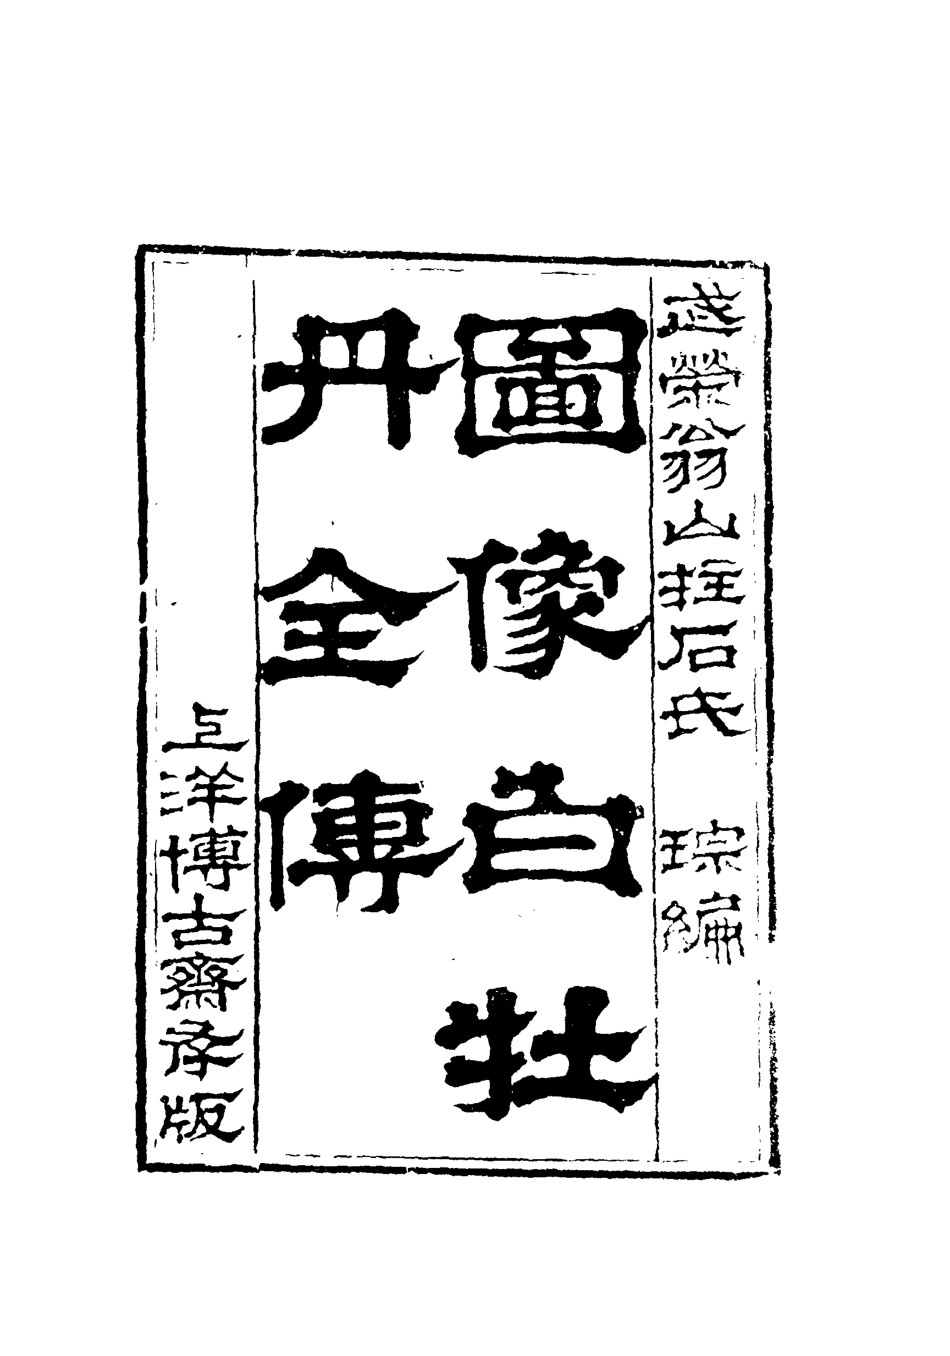 武榮翁山柱石氏 琮編
圖像白牡
丹全傳
上洋博古齋存版